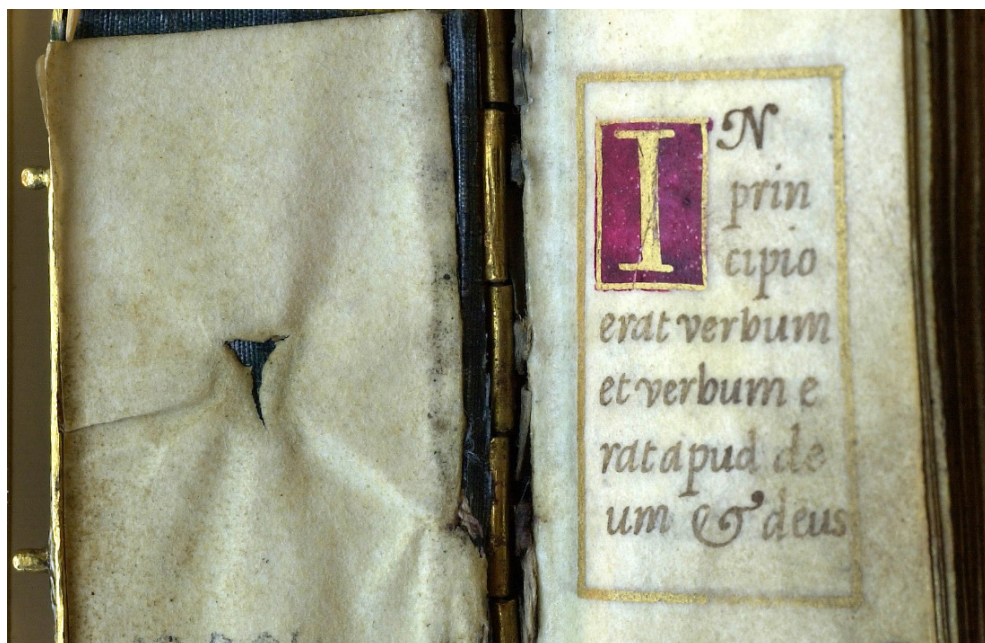 IN
prin
cipio
erat verbum
et verbum e
rat apud de
um & deus